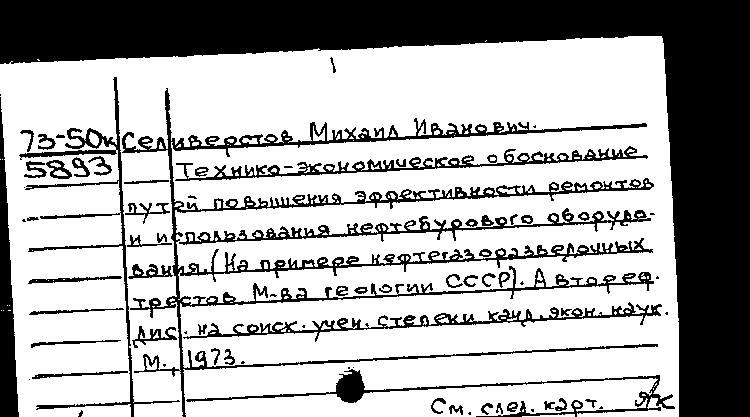 73-50к Селиверстов, Михаил Иванович.
5893 Технико-экономическое обоснование
путей повышения эффективности ремонтов
и использования нефтебурового оборудо-
вания. (На примере нефтегазоразведочных
трестов М-ва геологии СССР). Автореф.
дис. на соиск. учен. степени канд. экон. наук.
М., 1973.
См. след. карт.